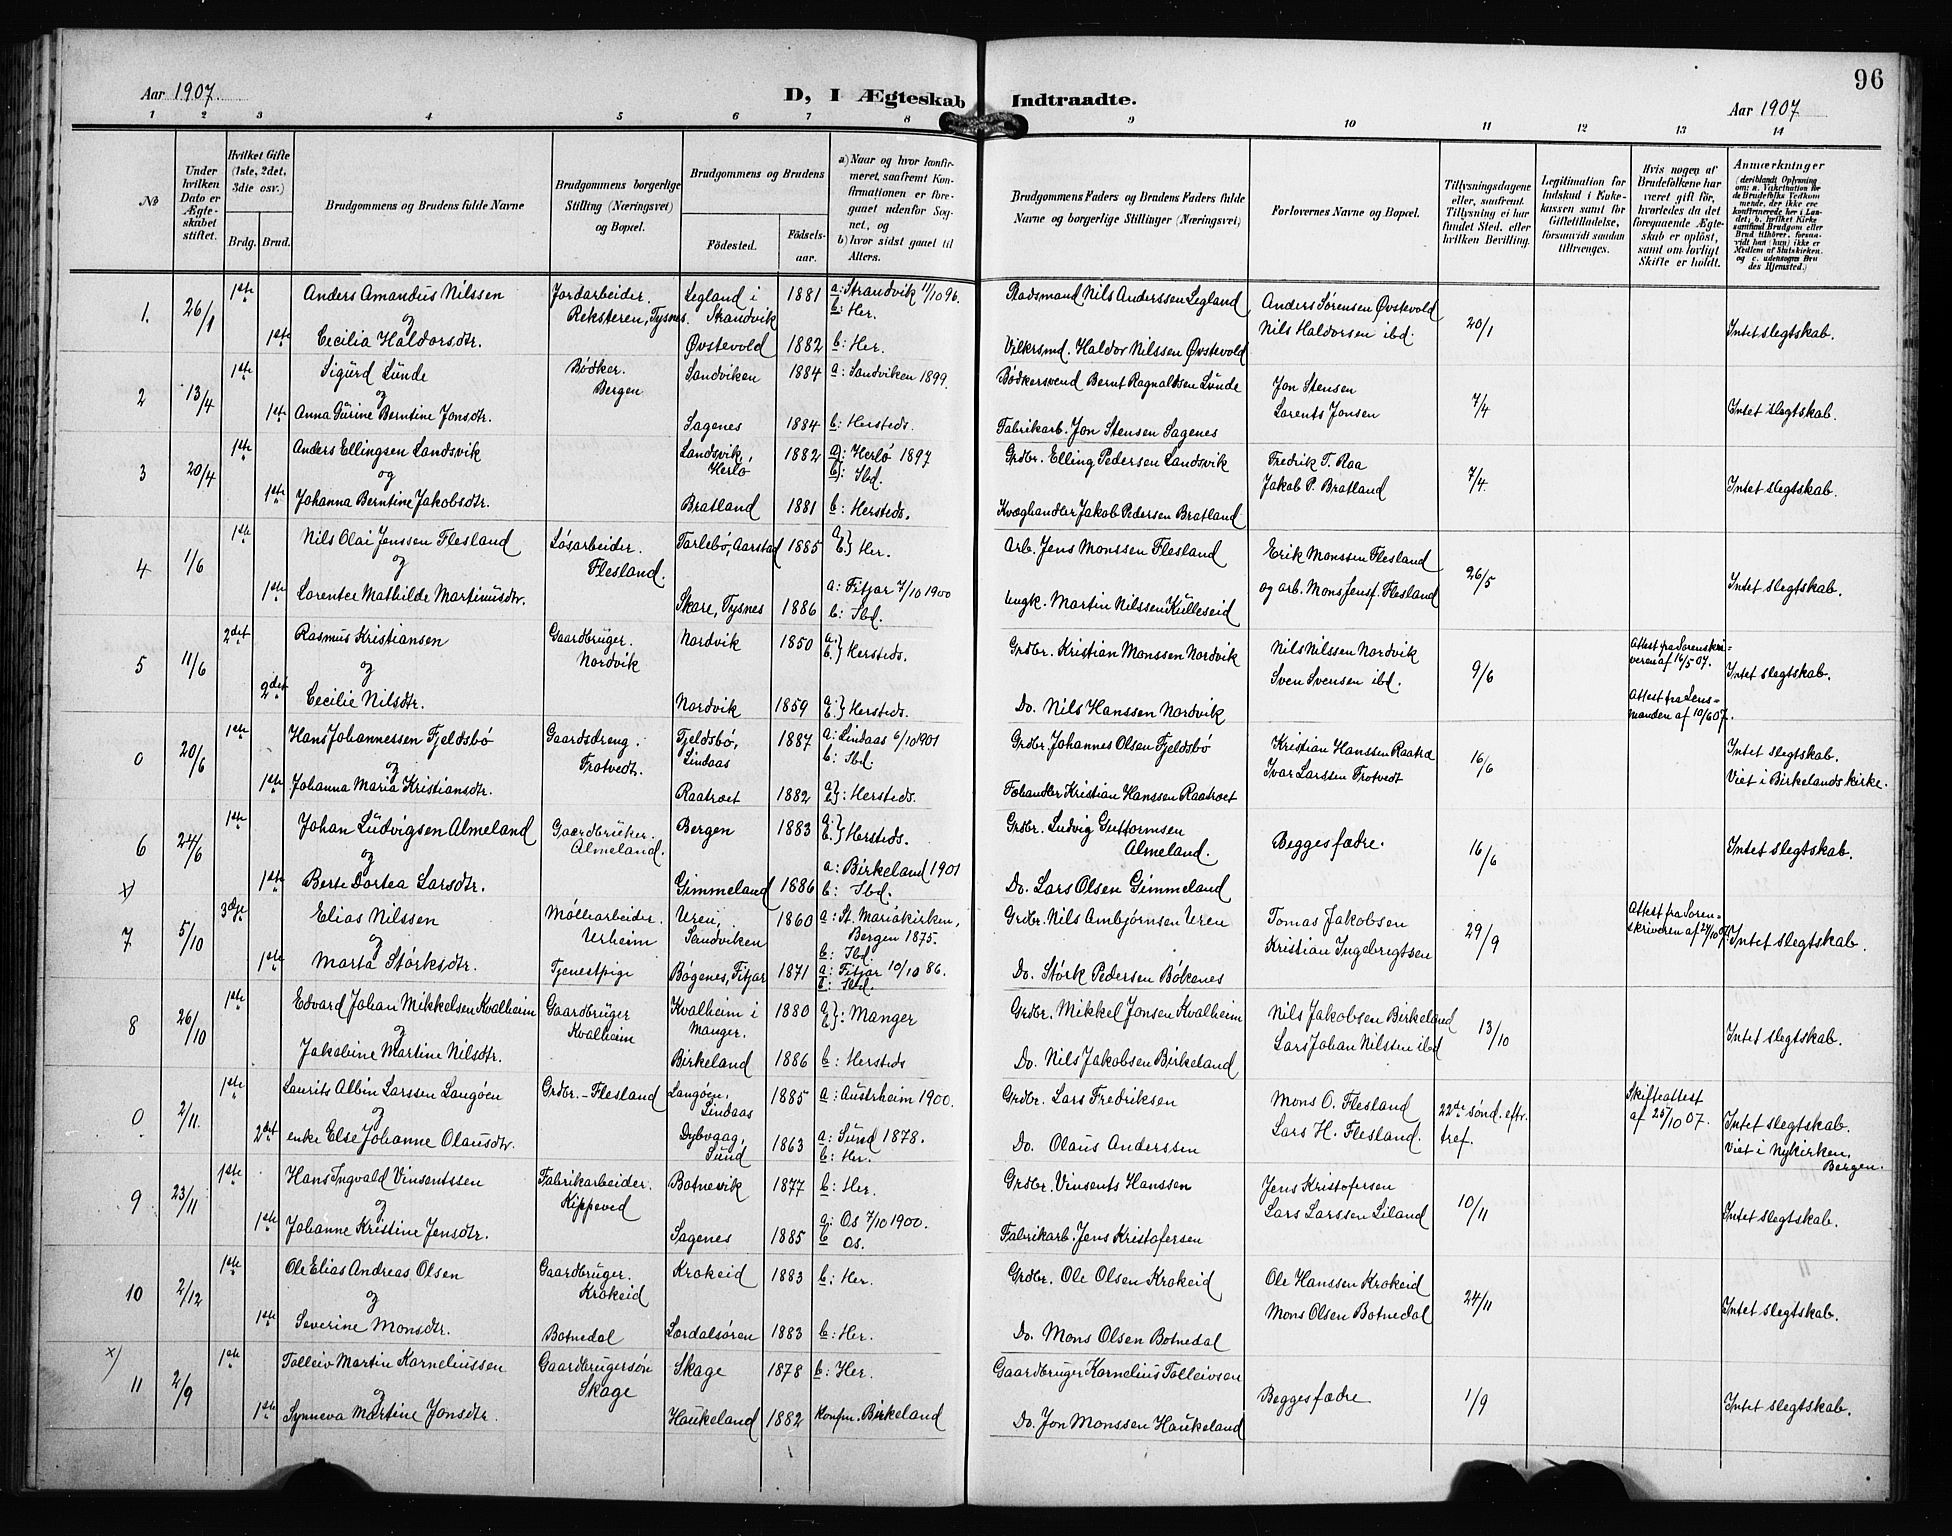 96
Aar 1907.
D, I Ægteskab Indtraadte.
Aar 1907
1 2 3 4 5 6 7 8 9 10 11 12 13 14
No
Under hvilken Dato er Ægteskabet stiftet.
Hvilket Gifte (1ste, 2det, 3die osv.)
Brdg. Brud.
Brudgommens og Brudens fulde Navne
Brudgommens borgerlige Stilling (Næringsvei) og Bopæl.
Brudgommens og Brudens
Fødested.
Fødselsaar.
a) Naar og hvor konfirmeret, saafremt Konfirmationen er foregaaet udenfor Sognet, og
b) hvor sidst gaaet til Alters.
Brudgommens Faders og Brudens Faders fulde Navne og borgerlige Stillinger (Næringsvei)
Forlovernes Navne og Bopæl.
Tillysningsdagene eller, saafremt Tillysning ei har fundet Sted, efter hvilken Bevilling.
Legitimation for Indskud i Enkekassen samt for Giftetilladelse, forsaavidt saadan tiltrænges.
Hvis nogen af Brudefolkene har været gift før, hvorledes da det foregaaende Ægteskab er opløst, samt om lovligt Skifte er holdt.
Anmærkninger (deriblandt Oplysning om: a. Vakcination for de Brudefolks Vedkommende, der ikke ere konfirmerede her i Landet; b. hvilket Kirkesamfund Brudgom eller Brud tilhører, forsaavidt han (hun) ikke er Medlem af Statskirken, og c. udensogns Brudes Hjemsted.)
1. 26/1 1ste Anders Amandus Nilssen Jordarbeider. Reksteren, Tysnes. Legland i Strandvik 1881 a: Strandvik 1/10 96. b: Her. Raadsmand Nils Anderssen Legland Anders Sørensen Øvstevold 20/1 Intet slegtskab.
og
1ste Cecilia Haldorsdtr. Øvstevold 1882 b: Her. Vilkrsmd. Haldor Nilssen Øvstevold Nils Haldorsen ibd.
2 13/4 1ste Sigurd Lunde Bødker. Bergen Sandviken 1884 a: Sandviken 1899. Bødkersvend Bernt Ragnaldsen Lunde Jon Stensen 7/4 Intet slegtskab.
og
1ste Anna Gurine Berntine Jonsdtr. Sagenes 1884 b: Hersteds. Fabrikarb. Jon Stensen Sagenes Lorents Jonsen
3 20/4 1ste Anders Ellingsen Landsvik Landsvik, Herlø 1882 a: Herlø 1897 b: Ibd. Grdbr. Elling Pedersen Landsvik Fredrik T. Raa 7/4. Intet slegtskab.
og
1ste Johanna Berntine Jakobsdtr. Bratland 1881 b: Hersteds. Kvæghandler Jakob Pedersen Bratland Jakob P. Bratland
4 1/6 1ste Nils Olai Jenssen Flesland Løsarbeider. Flesland. Tarlebø, Aarstad 1885 a} b} Her. Arb. Jens Monssen Flesland Erik Monssen Flesland 26/5 Intet slegtskab.
og
1ste Lorentce Mathilde Martinusdtr. Skare, Tysnes 1886 a: Fitjar 7/10 1900 b: Ibd. Ungk. Martin Nilssen Kulleseid og arb. Mons Jensf. Flesland
5 11/6 2det Rasmus Kristiansen Gaardbruger. Nordvik Nordvik 1850 a} b} Hersteds. Grdbr. Kristian Monssen Nordvik Nils Nilssen Nordvik 9/6 Attest fra Sorenskriveren af 16/5 07. Intet slegtskab.
og
2det Cecilie Nilsdtr. Nordvik 1859 a} b} Hersteds. Do. Nils Hanssen Nordvik Sven Svensen ibd. Attest fra Lensmanden af 10/6 07.
0 20/6 1ste Hans Johannessen Fjeldsbø Gaardsdreng. Trotvedt. Fjeldsbø, Lindaas 1887 a: Lindaas 6/10 1901 b: Ibd. Grdbr. Johannes Olsen Fjeldsbø Kristian Hanssen Raatra 16/6 Intet slegtskab.
og
1ste Johanna Maria Kristiansdtr. Raatroet 1882 a} b}: Hersteds. Føhandler Kristian Hanssen Raatroet Ivar Larssen Trotvedt Viet i Birkelands kirke.
6 24/6 1ste Johan Ludvigsen Almeland Gaardbruker. Almeland. Bergen 1883 a} b} Hersteds. Grdbr. Ludvig Guttormsen Almeland. Begges fædre. 16/6 Intet slegtskab.
og
x) 1ste Berte Dortea Larsdtr. Gimmeland 1886 a: Birkeland 1901 b: Ibd. Do. Lars Olsen Gimmeland
7 5/10 3dje Elias Nilssen Møllearbeider. Urheim Uren, Sandviken 1860 a: St. Mariakirken, Bergen 1875. b: Ibd. Grdbr. Nils Ambjørnsen Uren Tomas Jakobsen 29/9 Attest fra Sorenskriveren af 24/10 07. Intet slegtskab.
og
1ste Marta Størksdtr. Tjenestpige Bøgenes, Fitjar 1871 a: Fitjar 10/10 86. b: Ibd. Do. Størk Pedersen Bøkenes Kristian Ingebrigtsen
8 26/10 1ste Edvard Johan Mikkelsen Kvalheim Gaardbruger Kvalheim Kvalheim i Manger. 1880 a} b}: Manger Grdbr. Mikkel Jonsen Kvalheim Nils Jakobsen Birkeland 13/10 Intet slegtskab.
og
1ste Jakobine Martine Nilsdtr. Birkeland 1886 b: Hersteds Do. Nils Jakobsen Birkeland Lars Johan Nilsten ibd
0 2/11. 1ste Laurits Albin Larssen Langøen Grdbr. - Flesland Langøen, Lindaas 1885 a: Austrheim 1900. Grdbr. Lars Fredriksen Mons O. Flesland 22de sønd. eftr. tref. Skifteattest af 25/10 07. Intet slegtskab.
og
2det enke Else Johanne Olausdtr. Dybvaag, Sund 1863 a: Sund 1878. b: Her. Do. Olaus Anderssen Lars H. Flesland. Viet i Nykirken, Bergen.
9 23/11 1ste Hans Ingvald Vinsentssen Fabrikarbeider. Kippeved Botnevik 1877 b: Her. Grdbr. Vinsents Hanssen Jens Kristofersen 10/11 Intet slegtskab.
og
1ste Johanne Kristine Jensdtr. Sagenes 1885 a: Os 7/10 1900. b: Os. Fabrikarb. Jens Kristofersen Lars Larssen Liland
10 2/12 1ste Ole Elias Andreas Olsen Gaardbruger. Krokeid Krokeid 1883 b: Her. Grdbr. Ole Olsen Krokeid Ole Hanssen Krokeid 24/11 Intet slegtskab.
og
1ste Severine Monsdtr. Botnedal Lærdalsøren 1883 b: Her. Do. Mons Olsen Botnedal Mons Olsen Botnedal
x) 11 2/9 1ste Tolleiv Martin Korneliussen Gaardbrugersøn Skage Skage 1878 b: Her. Gaardbruger Kornelius Tolleivsen Begges fædre 1/9 Intet slegtskab.
og
1ste Synneva Martine Jonsdtr. Haukeland 1882 Konfm. Birkeland Do. Jon Monssen Haukeland